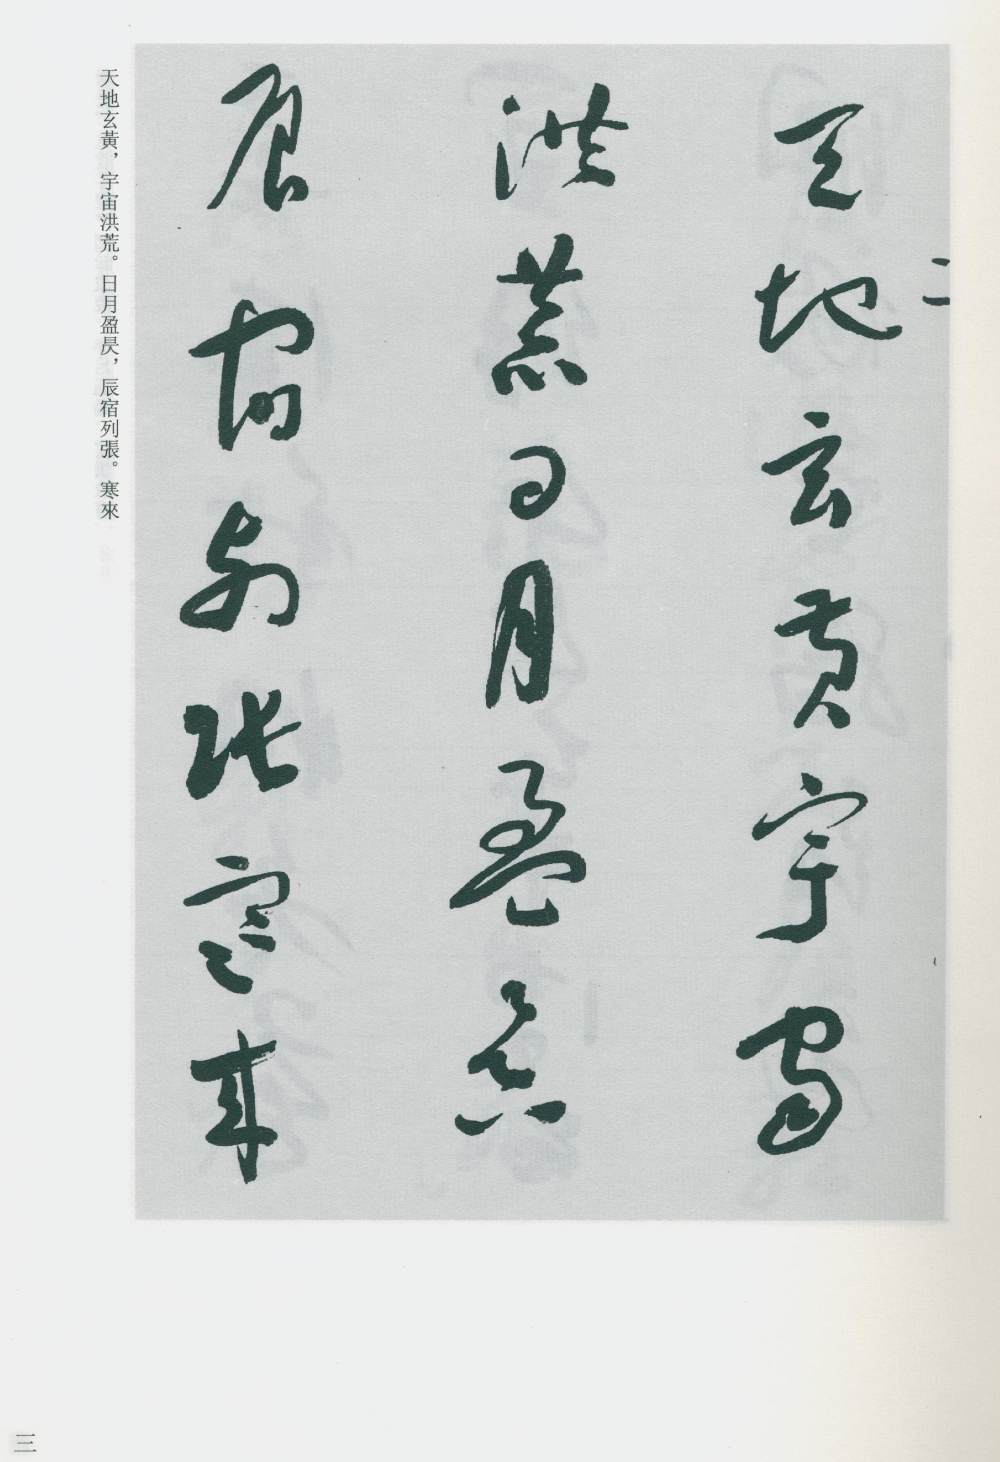 天地玄黃宇宙
洪荒日月盈昃
辰宿列張寒來
天地玄黃，宇宙洪荒。日月盈昃，辰宿列張。寒來
三